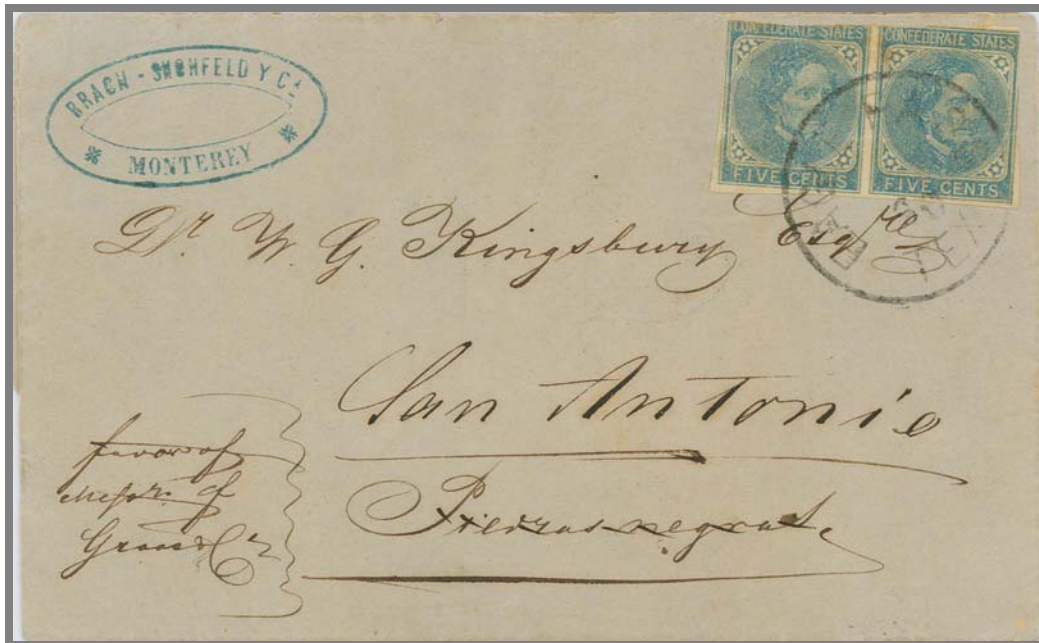 BRACH - SCHÖNFELD Y Cª
MONTEREY
CONFEDERATE STATES
FIVE CENTS
CONFEDERATE STATES
FIVE CENTS
TEX
Dr W. G. Kingsbury Esqre
San Antonio
Piedras negras
favor of
Messrs. of
Groos & Co